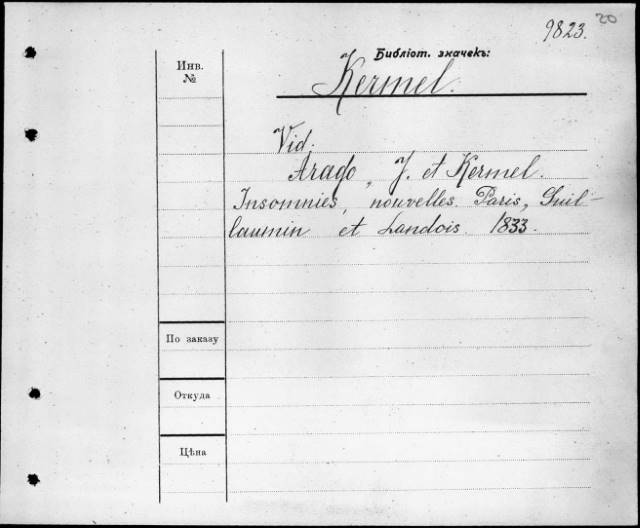 20
9823.
Инв.
№
Библіот. значекъ:
Kermel.
Vid.
Arago, J. et Kermel.
Insomnies, nouvelles. Paris, Guil-
laumin et Landois. 1833.
По заказу
Откуда
Цѣна